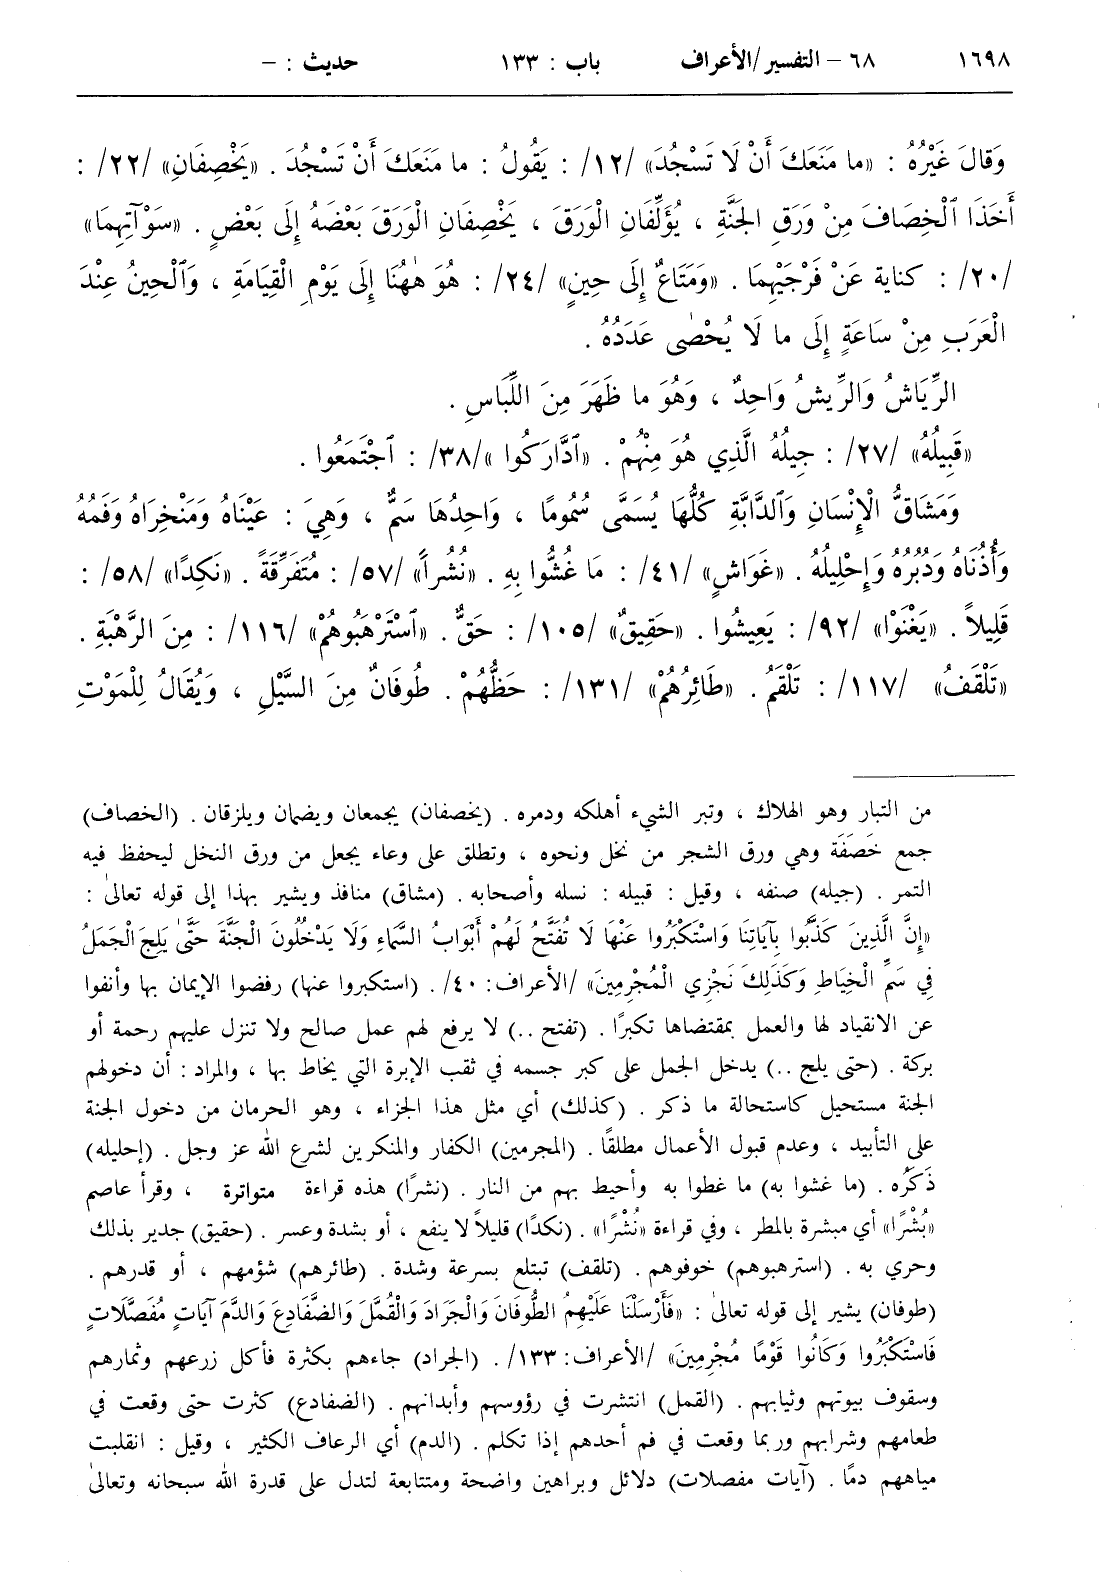 ١٦٩٨ ٦٨ - التفسير/الأعراف باب : ١٣٣ حديث : -
وَقالَ غَيْرُهُ : «ما مَنَعَكَ أَنْ لَا تَسْجُدَ» /١٢/ : يَقُولُ : ما مَنَعَكَ أَنْ تَسْجُدَ . «يَخْصِفَانِ» /٢٢/ :
أَخَذَا ٱلْخِصَافَ مِنْ وَرَقِ الجَنَّةِ ، يُؤَلِّفَانِ الْوَرَقَ ، يَخْصِفَانِ الْوَرَقَ بَعْضَهُ إِلَى بَعْضٍ . «سَوْآتِهِمَا»
/٢٠/ : كناية عَنْ فَرْجَيْهِمَا . «وَمَتَاعٌ إِلَى حِينٍ» /٢٤/ : هُوَ هٰهُنَا إِلَى يَوْمِ الْقِيَامَةِ ، وَٱلْحِينُ عِنْدَ
الْعَرَبِ مِنْ سَاعَةٍ إِلَى ما لَا يُحْصٰى عَدَدُهُ .
الرِّيَاشُ وَالرِّيشُ وَاحِدٌ ، وَهُوَ ما ظَهَرَ مِنَ اللِّبَاسِ .
«قَبِيلُهُ» /٢٧/ : جِيلُهُ الَّذِي هُوَ مِنْهُمْ . «ٱدَّارَكُوا »/٣٨/ : ٱجْتَمَعُوا .
وَمَشَاقُّ الْإِنْسَانِ وَٱلدَّابَّةِ كُلُّهَا يُسَمَّى سُمُومًا ، وَاحِدُهَا سَمٌّ ، وَهِيَ : عَيْنَاهُ وَمَنْخِرَاهُ وَفَمُهُ
وَأُذُنَاهُ وَدُبُرُهُ وَإِحْلِيلُهُ . «غَوَاشٍ» /٤١/ : مَا غُشُّوا بِهِ . «نُشُراً» /٥٧/ : مُتَفَرِّقَةً . «نَكِدًا» /٥٨/ :
قَلِيلاً . «يَغْنَوْا» /٩٢/ : يَعِيشُوا . «حَقِيقٌ» /١٠٥/ : حَقٌّ . «ٱسْتَرْهَبُوهُمْ» /١١٦/ : مِنَ الرَّهْبَةِ .
«تَلْقَفُ» /١١٧/ : تَلْقَمُ . «طَائِرُهُمْ» /١٣١/ : حَظُّهُمْ . طُوفَانٌ مِنَ السَّيْلِ ، وَيُقَالُ لِلْمَوْتِ
من التبار وهو الهلاك ، وتبر الشيء أهلكه ودمره . (يخصفان) يجمعان ويضمان ويلزقان . (الخصاف)
جمع خَصَفَة وهي ورق الشجر من نخل ونحوه ، وتطلق على وعاء يجعل من ورق النخل ليحفظ فيه
التمر . (جيله) صنفه ، وقيل : قبيله : نسله وأصحابه . (مشاق) منافذ ويشير بهذا إلى قوله تعالىٰ :
«إِنَّ الَّذِينَ كَذَّبُوا بِآيَاتِنَا وَاسْتَكْبَرُوا عَنْهَا لَا تُفَتَّحُ لَهُمْ أَبْوَابُ السَّمَاءِ وَلَا يَدْخُلُونَ الْجَنَّةَ حَتَّىٰ يَلِجَ الْجَمَلُ
فِي سَمِّ الْخِيَاطِ وَكَذَلِكَ نَجْزِي الْمُجْرِمِينَ» /الأعراف: ٤٠/ . (استكبروا عنها) رفضوا الإيمان بها وأنفوا
عن الانقياد لها والعمل بمقتضاها تكبرًا . (تفتح ..) لا يرفع لهم عمل صالح ولا تنزل عليهم رحمة أو
بركة . (حتى يلج ..) يدخل الجمل على كبر جسمه في ثقب الإبرة التي يخاط بها ، والمراد : أن دخولهم
الجنة مستحيل كاستحالة ما ذكر . (كذلك) أي مثل هذا الجزاء ، وهو الحرمان من دخول الجنة
على التأبيد ، وعدم قبول الأعمال مطلقًا . (المجرمين) الكفار والمنكرين لشرع الله عز وجل . (إحليله)
ذَكَرُه . (ما غشوا به) ما غطوا به وأحيط بهم من النار . (نشرًا) هذه قراءة متواترة ، وقرأ عاصم
«بُشْرًا» أي مبشرة بالمطر ، وفي قراءة «نُشْرًا» . (نكدًا) قليلاً لا ينفع ، أو بشدة وعسر . (حقيق) جدير بذلك
وحري به . (استرهبوهم) خوفوهم . (تلقف) تبتلع بسرعة وشدة . (طائرهم) شؤمهم ، أو قدرهم .
(طوفان) يشير إلى قوله تعالىٰ : «فَأَرْسَلْنَا عَلَيْهِمُ الطُّوفَانَ وَالْجَرَادَ وَالْقُمَّلَ وَالضَّفَادِعَ وَالدَّمَ آيَاتٍ مُفَصَّلَاتٍ
فَاسْتَكْبَرُوا وَكَانُوا قَوْمًا مُجْرِمِينَ» /الأعراف: ١٣٣/ . (الجراد) جاءهم بكثرة فأكل زرعهم وثمارهم
وسقوف بيوتهم وثيابهم . (القمل) انتشرت في رؤوسهم وأبدانهم . (الضفادع) كثرت حتى وقعت في
طعامهم وشرابهم وربما وقعت في فم أحدهم إذا تكلم . (الدم) أي الرعاف الكثير ، وقيل : انقلبت
مياههم دمًا . (آيات مفصلات) دلائل وبراهين واضحة ومتتابعة لتدل على قدرة الله سبحانه وتعالىٰ